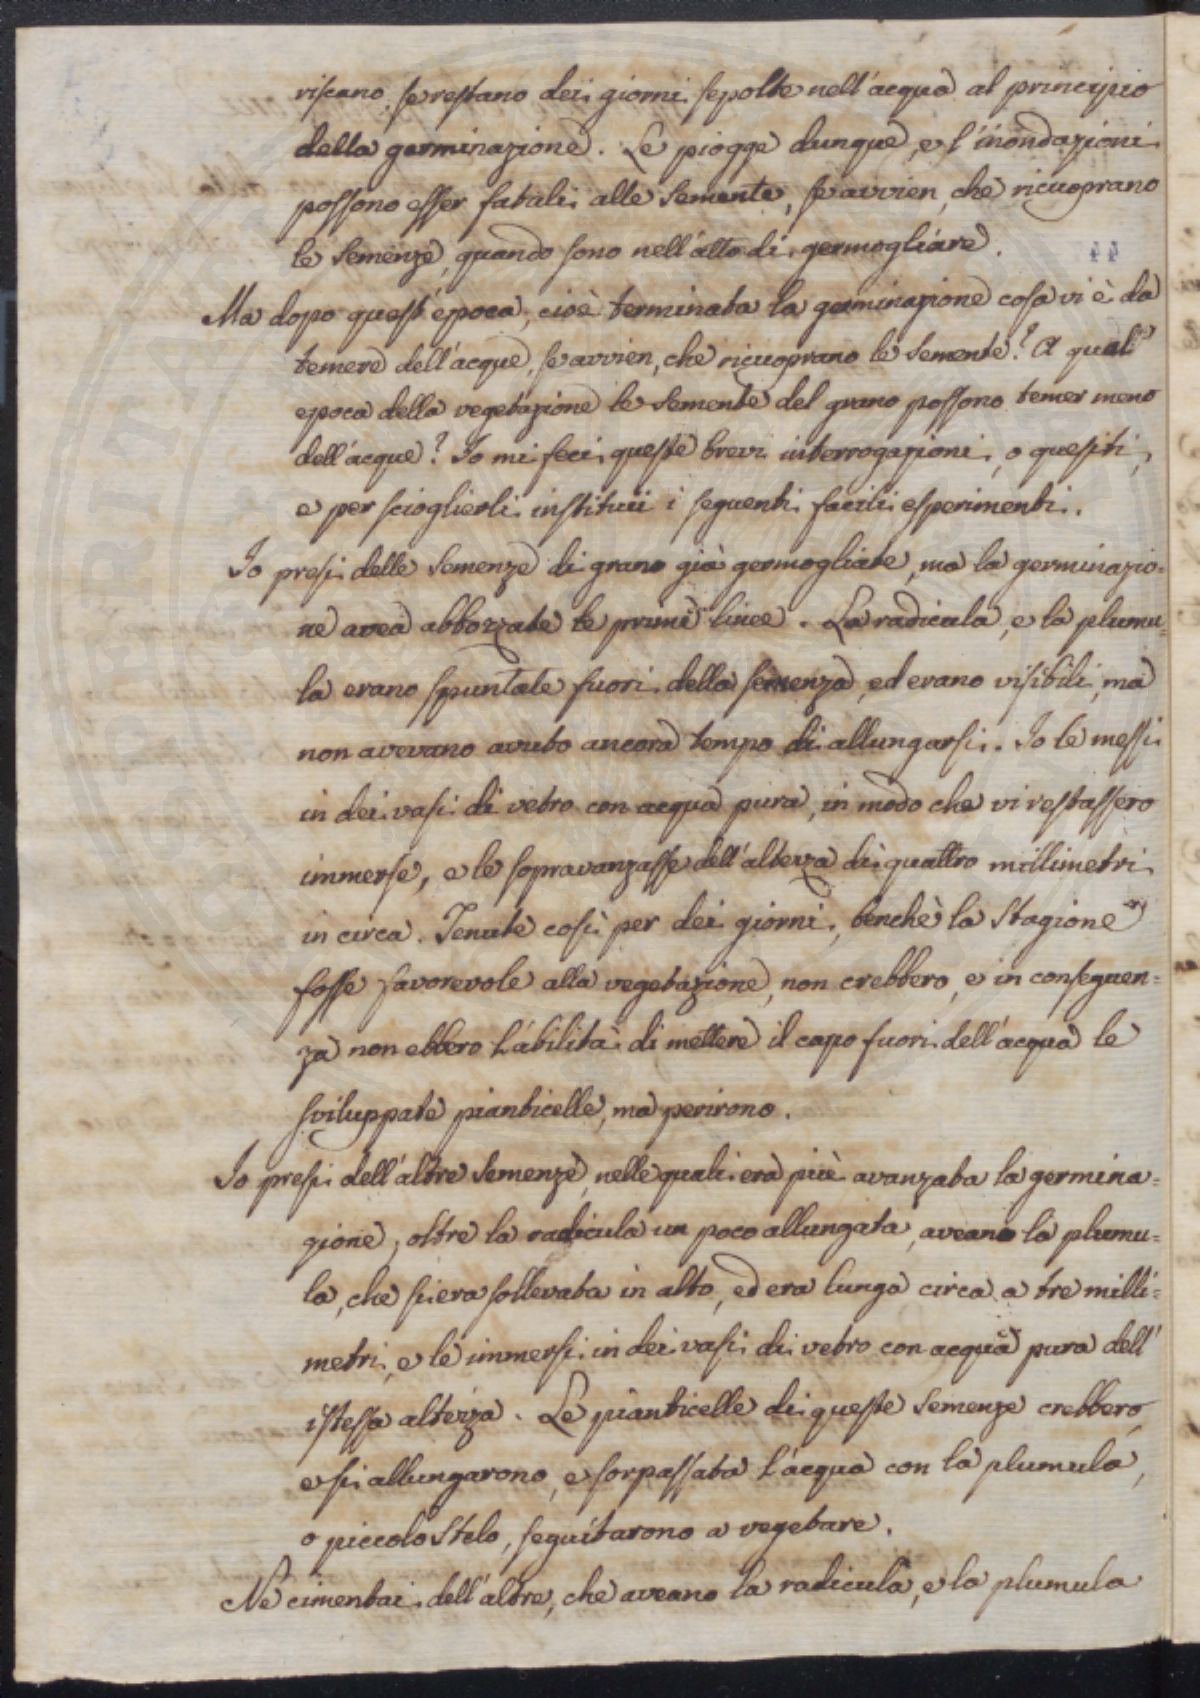 riscano, se restano dei giorni sepolte nell'acqua al principio
della germinazione. Le piogge dunque, e l'inondazioni
possono esser fatali alle semente, se avvien, che ricuoprano
le semenze, quando sono nell'atto di germogliare.
Ma dopo quest'epoca, cioè terminata la germinazione cosa vi è da
temere dell'acque, se avvien, che ricuoprano le semente? A qual'
epoca della vegetazione le semente del grano possono temer meno
dell'acque? Io mi feci queste brevi interrogazioni, o quesiti,
e per scioglierli instituii i seguenti facili esperimenti.
Io presi delle semenze di grano già germogliate, ma la germinazio=
ne avea abbozzate le prime linee. La radicula, e la plumu=
la erano spuntate fuori della semenza, ed erano visibili, ma
non avevano avuto ancora tempo di allungarsi. Io le messi
in dei vasi di vetro con acqua pura, in modo che vi restassero
immerse, e le sopravanzasse dell'altezza di quattro millimetri
in circa. Tenute così per dei giorni, benchè la stagione
fosse favorevole alla vegetazione, non crebbero, e in conseguen=
za non ebbero l'abilità di mettere il capo fuori dell'acqua le
sviluppate pianticelle, ma perirono.
Io presi dell'altre semenze, nelle quali era più avanzata la germina=
zione, oltre la radicula un poco allungata, aveano la plumu=
la, che si era sollevata in alto, ed era lunga circa a tre milli=
metri, e le immersi in dei vasi di vetro con acqua pura dell'
istessa altezza. Le pianticelle di queste semenze crebbero,
e si allungarono, e sorpassata l'acqua con la plumula,
o piccolo stelo, seguitarono a vegetare.
Ne cimentai dell'altre, che aveano la radicula, e la plumula